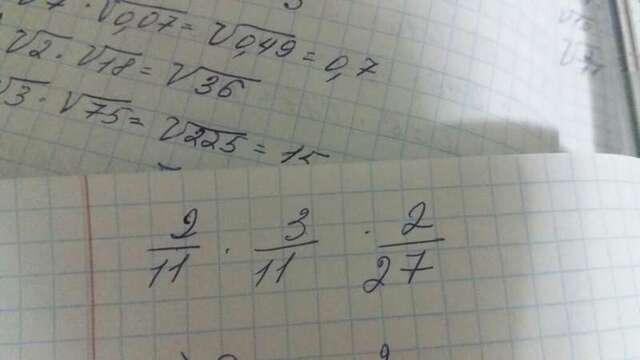 √7 · √0,07 = √0,49 = 0,7
√2 · √18 = √36
√3 · √75 = √225 = 15
2/11 · 3/11 · 2/27